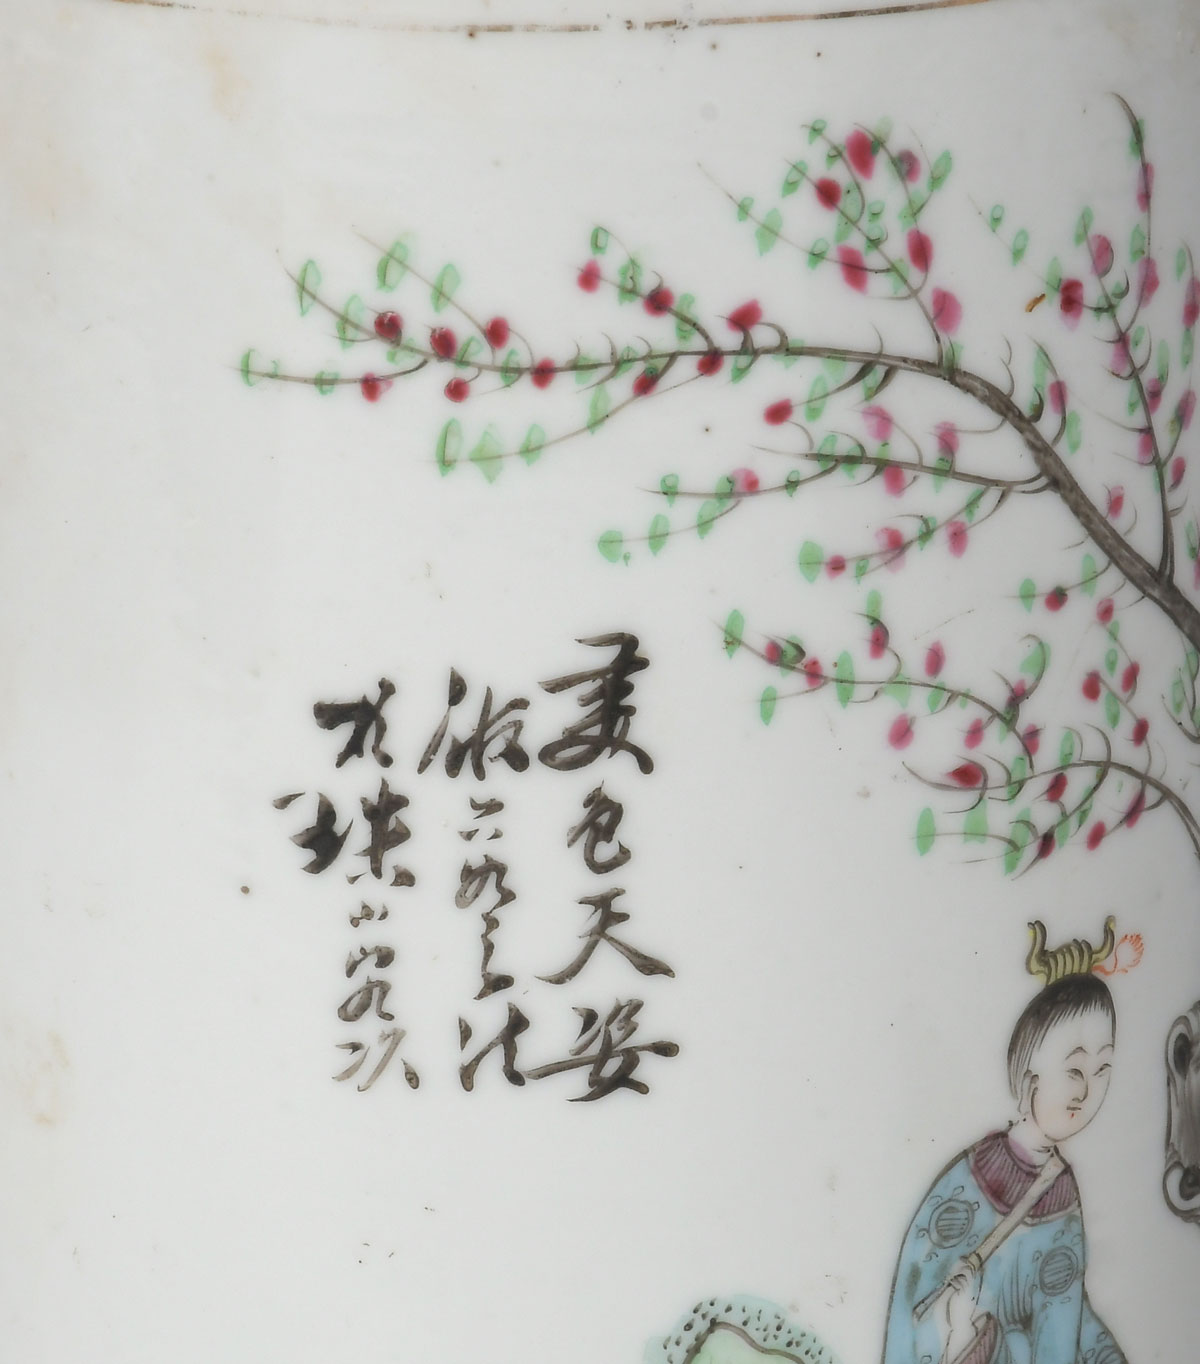 美色天姿
倣六如之法
於珠山客次